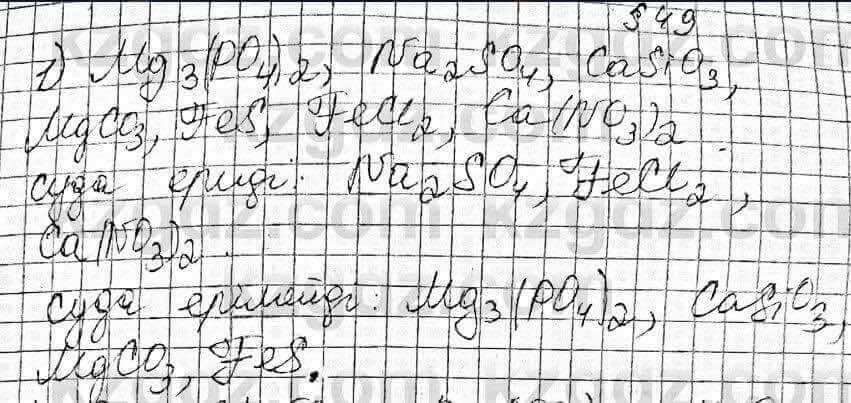 §49
1) Mg₃(PO₄)₂, Na₂SO₄, CaSiO₃,
MgCO₃, FeS, FeCl₂, Ca(NO₃)₂
суда ериді: Na₂SO₄, FeCl₂,
Ca(NO₃)₂.
суда ерімейді: Mg₃(PO₄)₂, CaSiO₃,
MgCO₃, FeS.